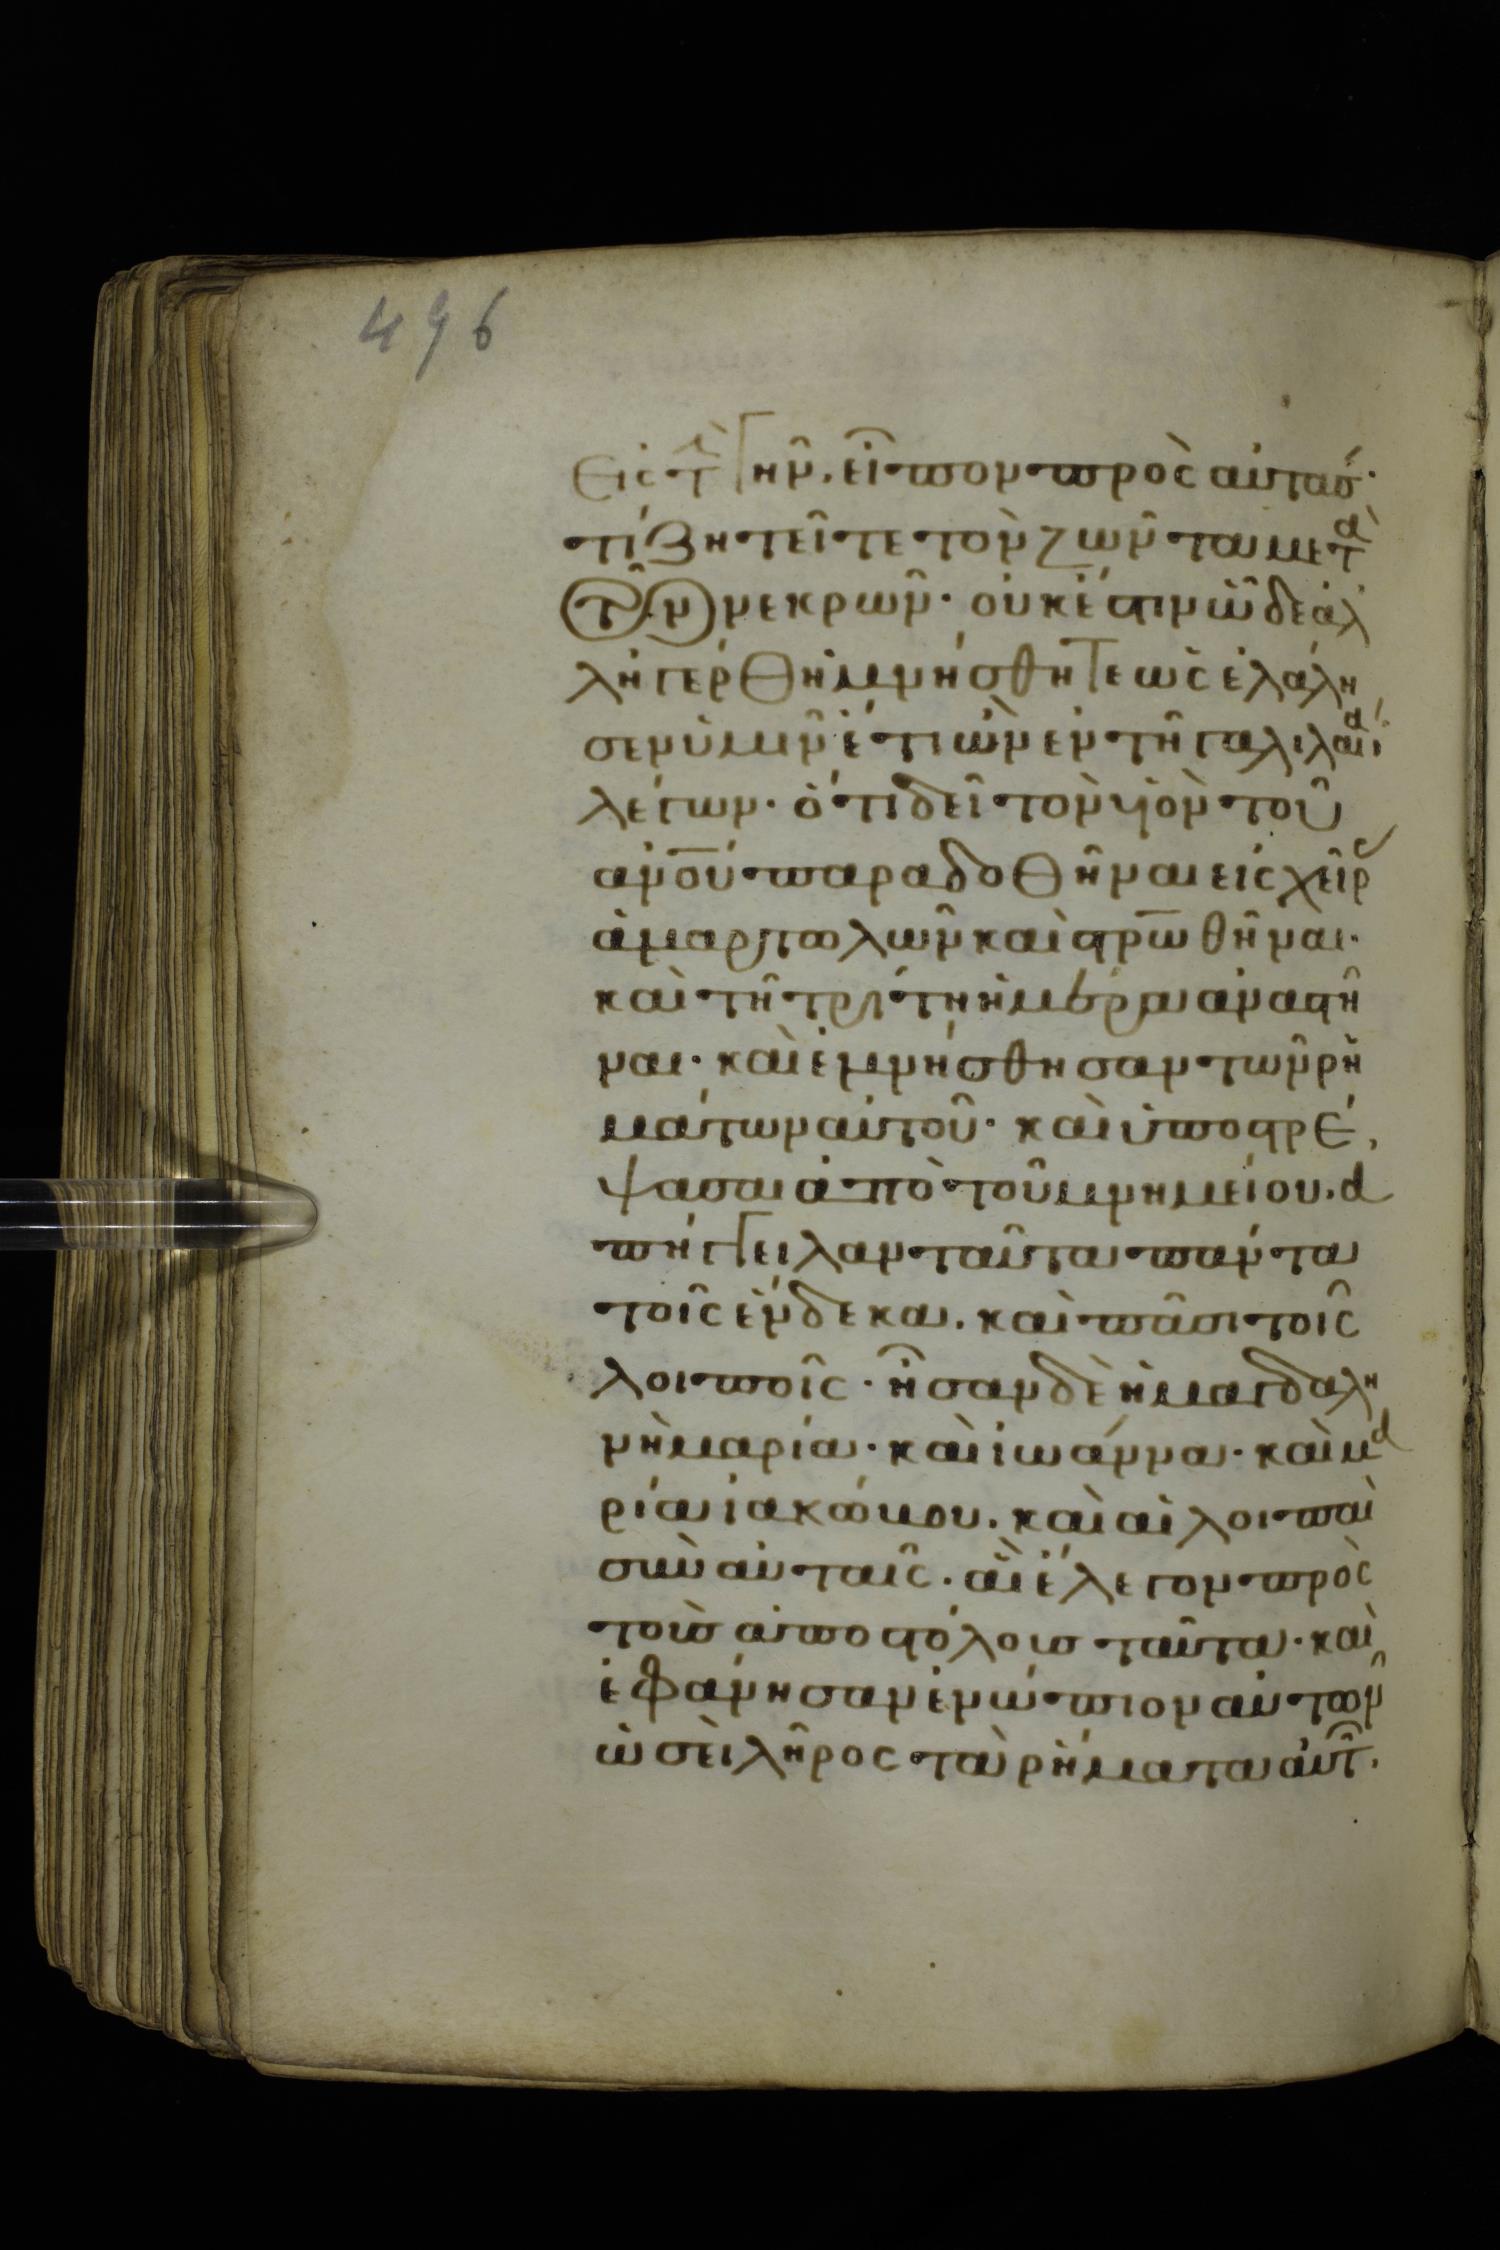 496
εἰς τ̀ γῆν. εἶπον πρὸς αὐτάς·
τί ζητεῖτε τὸν ζῶντα μετὰ
τῶν νεκρῶν· οὐκ ἔστιν ὧδε ἀλ
λ' ἠγέρθη μνήσθητε ὡς ἐλάλη
σεν ὑμῖν ἔτι ὢν ἐν τῆ γαλιλαία
λέγων· ὅτι δεῖ τὸν υἱὸν τοῦ
ἀν̅ου̅ παραδοθῆναι εἰς χεῖρς
ἁμαρτωλῶν καὶ στρ̅ωθῆναι·
καὶ τῆ τρίτη ἡμέρα ἀναστῆ
ναι· καὶ ἐμνήσθησαν τῶν ῥη
μάτων αὐτοῦ· καὶ ὑποστρέ
ψασαι ἀπὸ τοῦ μνημείου. α
πήγγειλαν ταῦτα πάντα
τοῖς ἕνδεκα. καὶ πᾶσι τοῖς
λοιποῖς· ἦσαν δὲ ἡ μαγδαλη
νὴ μαρία· καὶ ἰωάννα· καὶ μα
ρία ἰακώβου. καὶ αἱ λοιπαὶ
σὺν αὐταῖς. αἳ ἔλεγον πρὸς
τοὺς ἀποστόλους ταῦτα· καὶ
ἐφάνησαν ἐνώπιον αὐτῶν
ὡσεὶ λῆρος τὰ ῥήματα αὐτ̑.